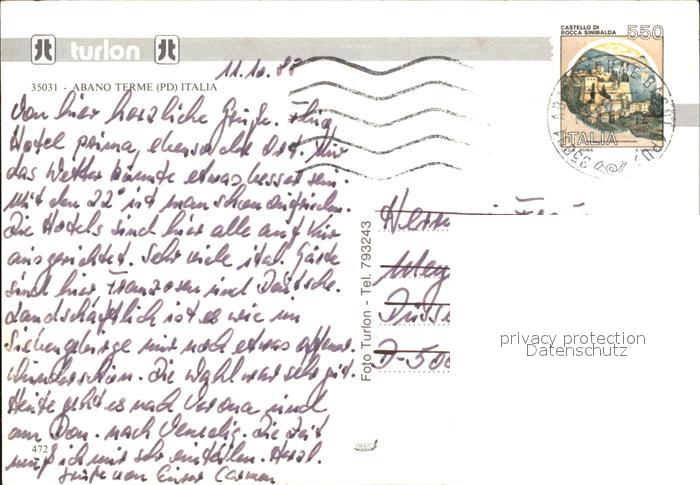 turlon
CASTELLO DI
ROCCA SINIBALDA
550
11.10.88
35031 - ABANO TERME (PD) ITALIA
Von hier herzliche Grüße. Flug,
Hotel prima, ebenso der Ort. Nur
das Wetter könnte etwas besser sein.
Mit den 22° ist man schon zufrieden.
Die Hotels sind hier alle auf Kur
ausgerichtet. Sehr viele ital. Gäste
sind hier, Franzosen und Deutsche.
Landschaftlich ist es wie im
Siebengebirge nur noch etwas
Wunderschön. Die Wahl war sehr gut.
Heute geht es nach Verona und
am Don. nach Venedig. Die Zeit
muß ich mir sehr einteilen. Herzl.
Grüße von Eurer Carmen
ITALIA
ROMA
Herrn
Weg
Düss
D-500
Foto Turlon - Tel. 793243
472
privacy protection
Datenschutz